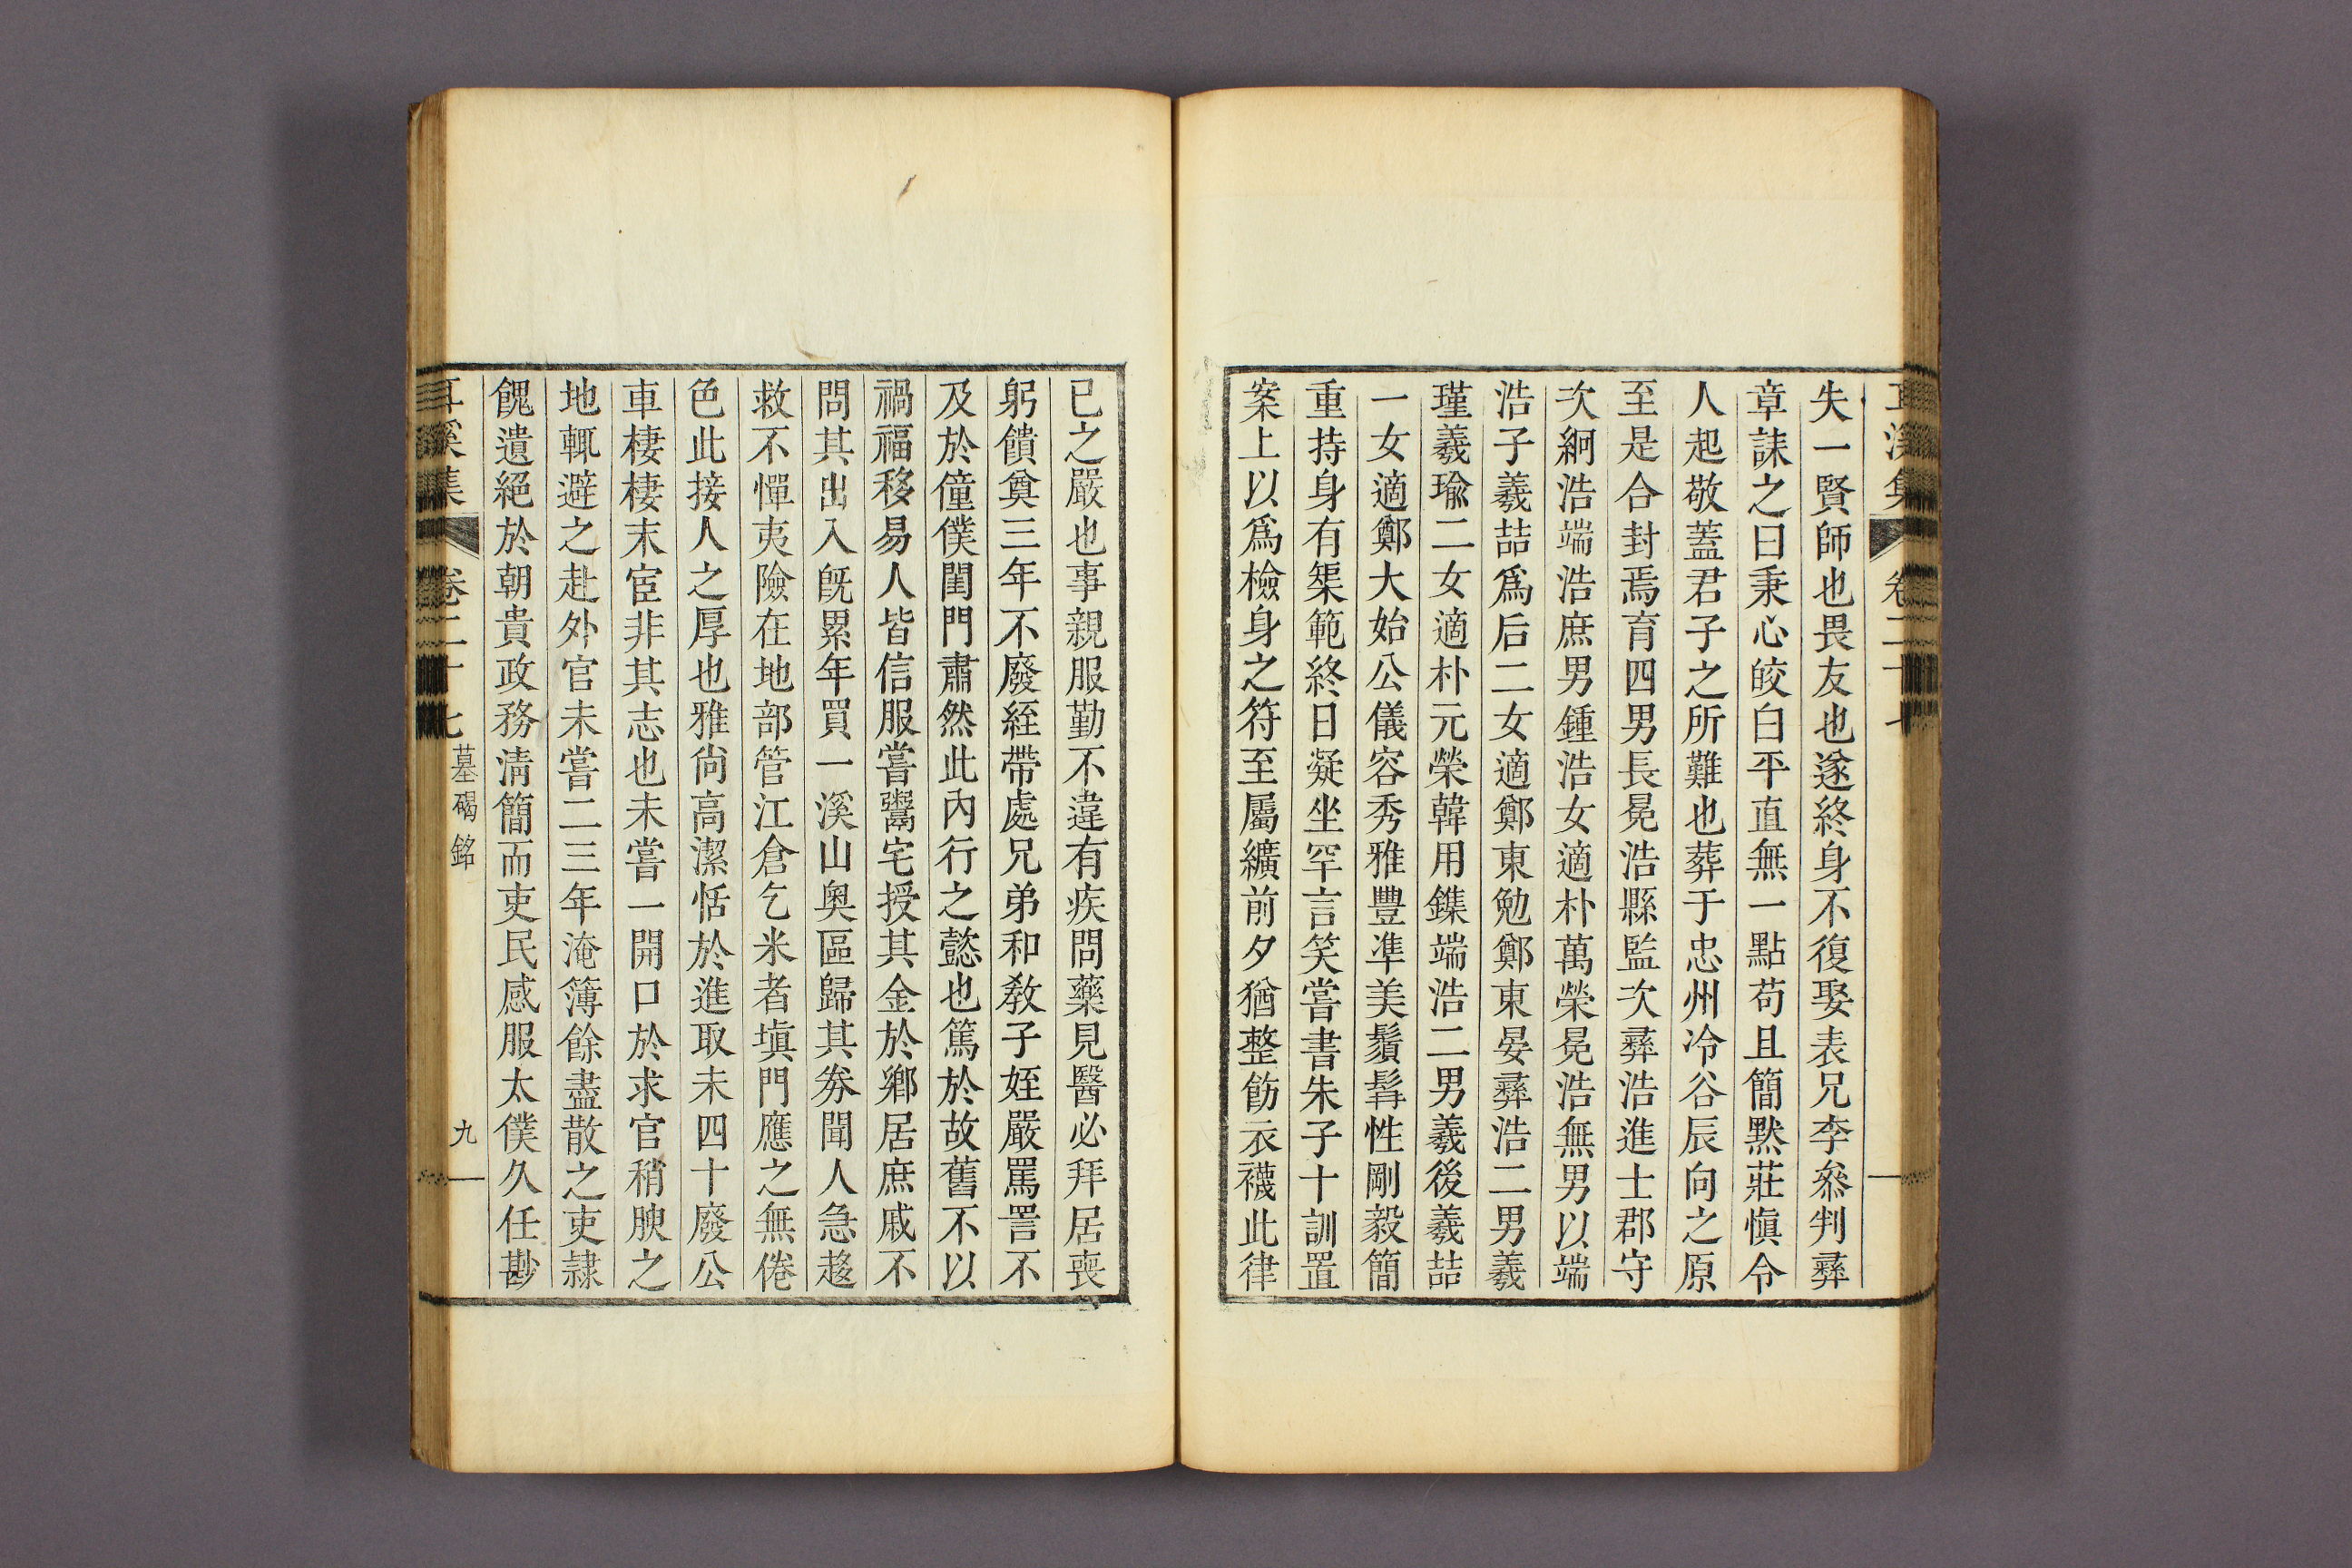 耳溪集 卷二十七
失一賢師也畏友也遂終身不復娶表兄李叅判彛
章誄之曰秉心皎白平直無一點苟且簡默莊愼令
人起敬蓋君子之所難也葬于忠州冷谷辰向之原
至是合封焉育四男長冕浩縣監次彛浩進士郡守
次綱浩端浩庶男鍾浩女適朴萬榮冕浩無男以端
浩子羲喆爲后二女適鄭東勉鄭東晏彛浩二男羲
瑾羲瑜二女適朴元榮韓用鏶端浩二男羲後羲喆
一女適鄭大始公儀容秀雅豐凖美鬚髯性剛毅簡
重持身有榘範終日凝坐罕言笑嘗書朱子十訓置
案上以爲檢身之符至屬纊前夕猶整飭衣襪此律
已之嚴也事親服勤不違有疾問藥見醫必拜居喪
躬饋奠三年不廢絰帶處兄弟和敎子姪嚴罵詈不
及於僮僕閨門肅然此內行之懿也篤於故舊不以
禍福移易人皆信服嘗鬻宅授其金於鄕居庶戚不
問其出入旣累年買一溪山奧區歸其券聞人急趍
救不憚夷險在地部管江倉乞米者塡門應之無倦
色此接人之厚也雅尙高潔恬於進取未四十廢公
車棲棲末宦非其志也未嘗一開口於求官稍腴之
地輒避之赴外官未嘗二三年淹簿餘盡散之吏隷
餽遺絕於朝貴政務淸簡而吏民感服太僕久任勘
耳溪集 卷二十七 墓碣銘 九